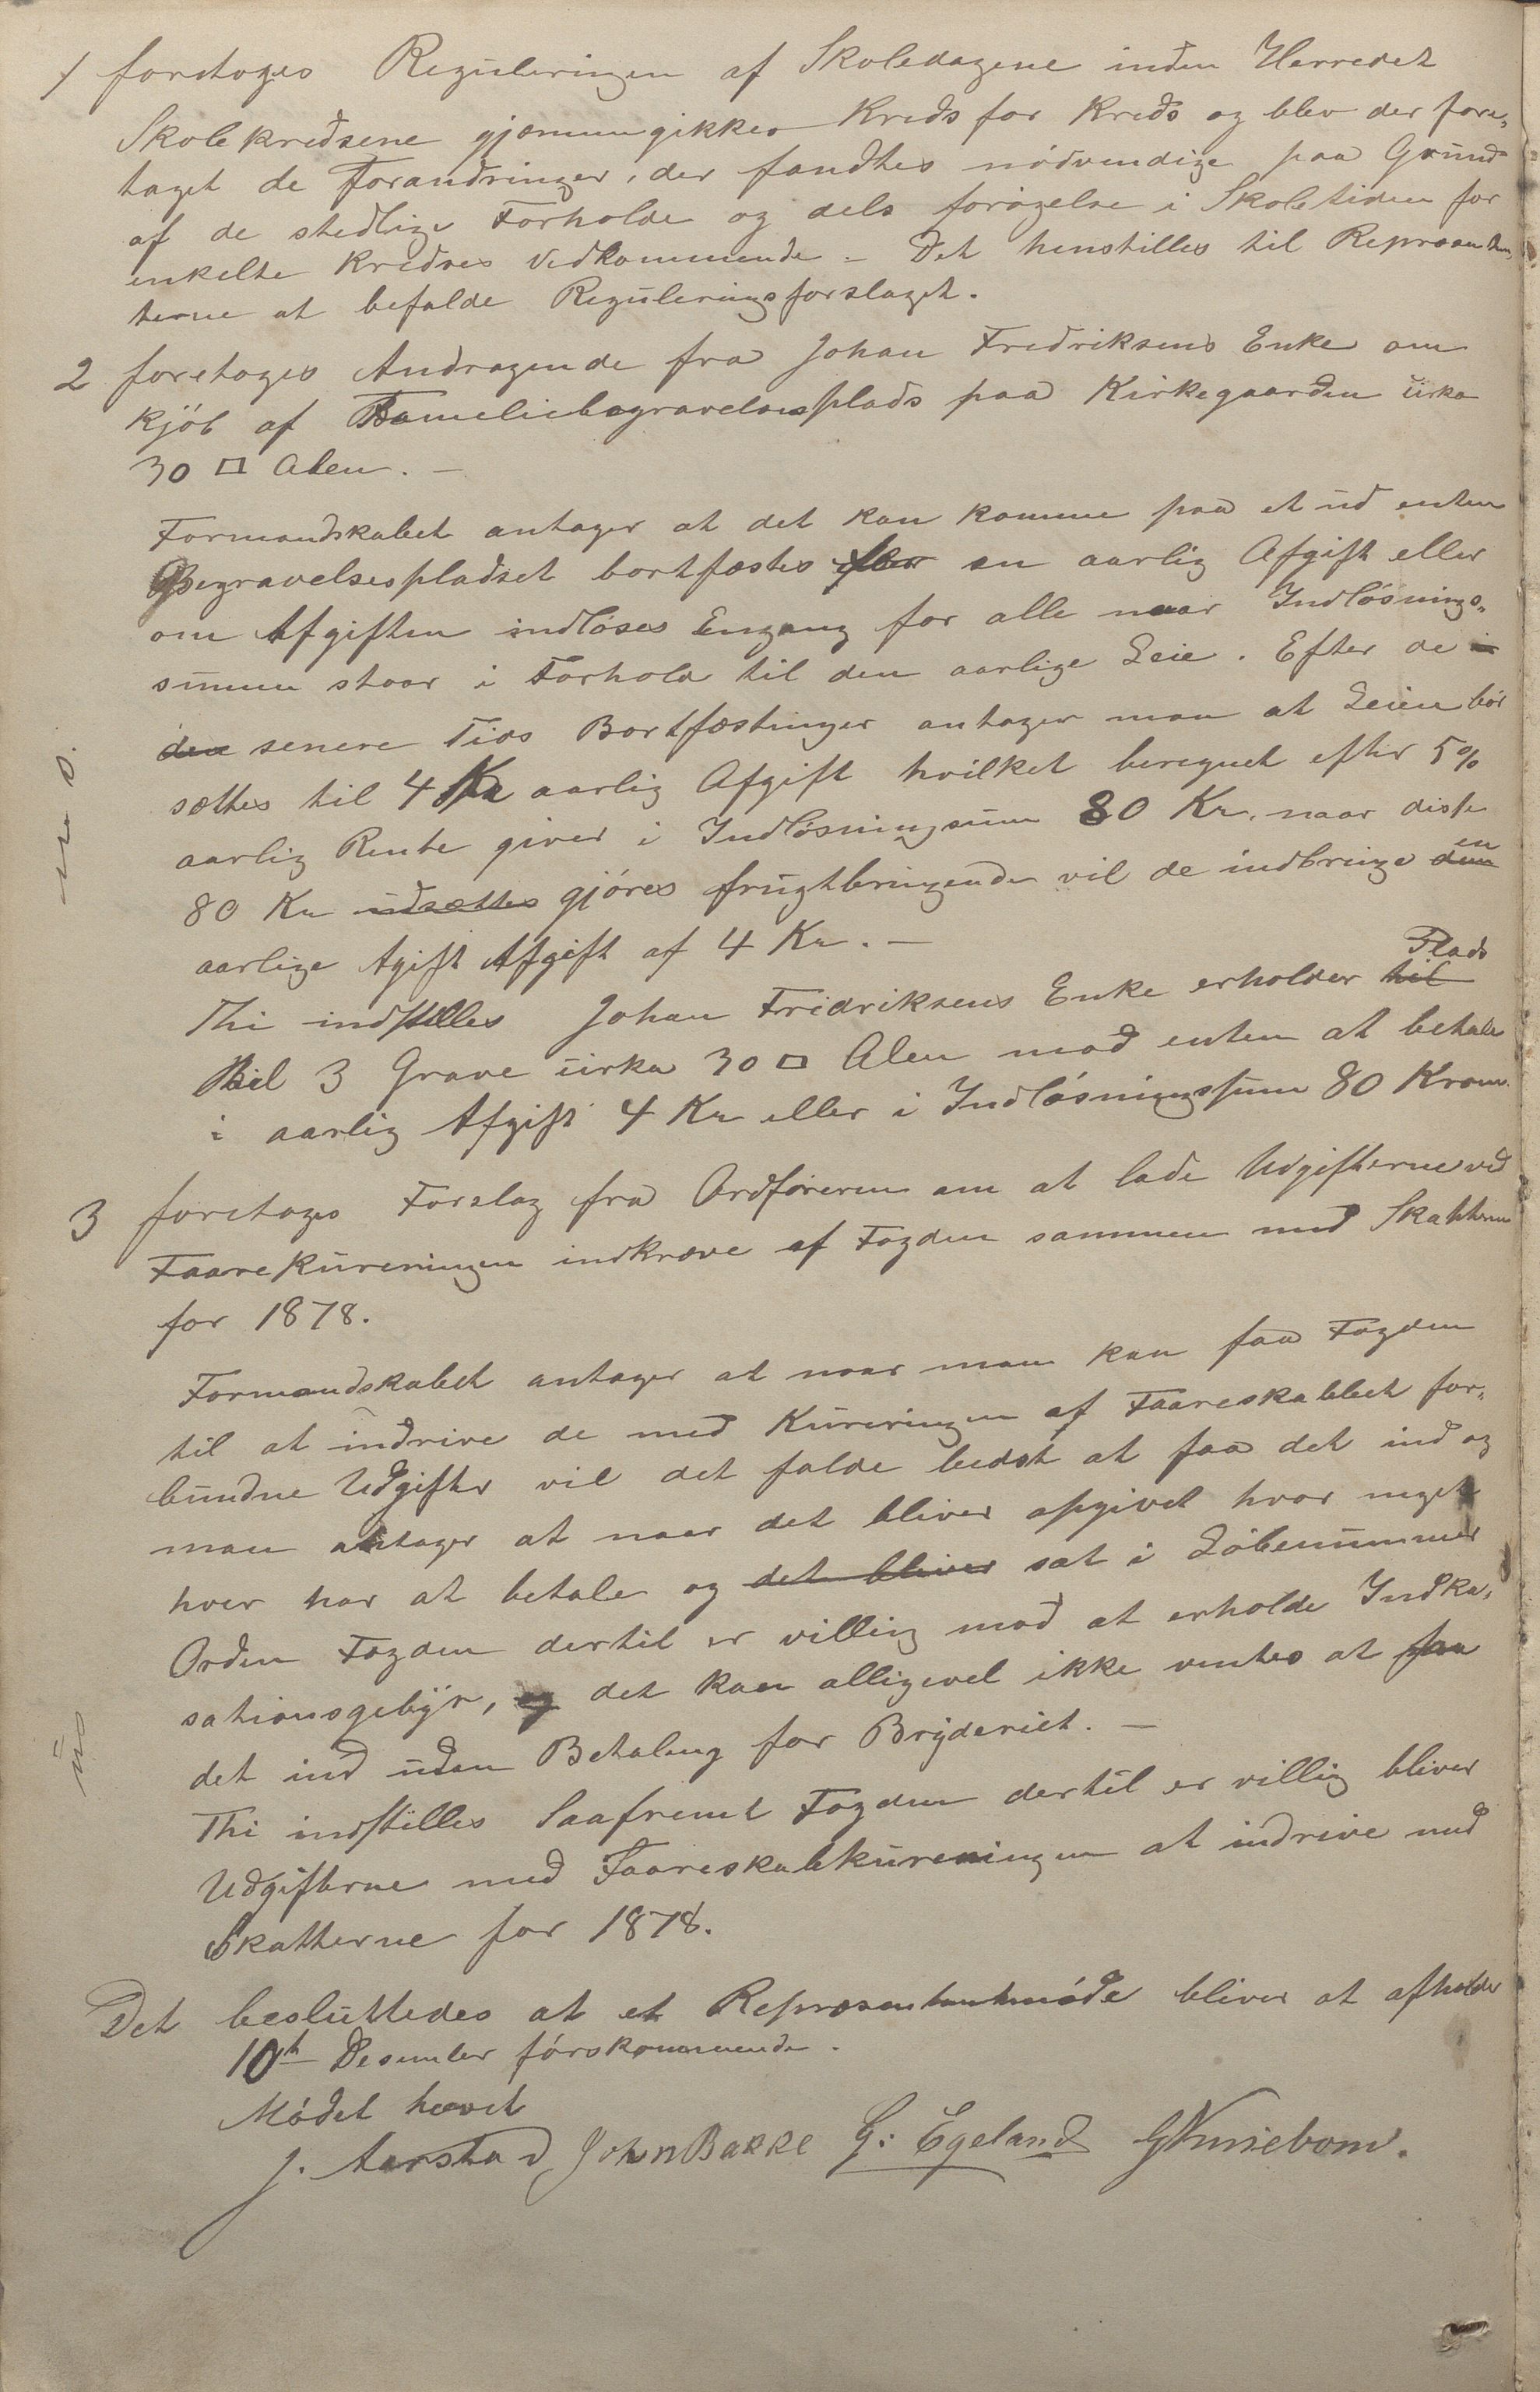 1 foretoges Reguleringen af Skoledagene inden Herredet
Skolekredsene gjæmmengikkes Kreds for Kreds og blev der fore„
taget de Forandringer, der fandtes nödvendige paa Grund
af de stedlige Forholde og dels forögelse i Skoletiden for
enkelte Kredses Vedkommende – Det henstilles til Repræsen„
terne at befalde Reguleringsforslaget.
2 foretoges Andragende fra Johan Fredriksens Enke om
Kjöb af Fameliebegravelsesplads paa Kirkegaarden cirka
30 □ Alen. –
Formandskabet antager at det kan komme paa et ud enten
Begravelsespladset bortfæstes efter en aarlig Afgift eller
om Afgiften indlöses Engang for alle naar Indlösnings„
summen staar i Forhold til den aarlige Leie. Efter de i
den senere Tids Bortfæstninger antager man at Leien bör
sættes til 4 Kr aarlig Afgift hvilket beregnet efter 5%
aarlig Rente giver i Indlösningsum 80 Kr. naar disse
80 Kr udsættes gjöres frugtbringende vil de indbringe den en
aarlige Agift Afgift af 4 Kr. –
Thi indstilles Johan Fredriksens Enke erholder til Plads
til 3 Grave cirka 30 □ Alen mod enten at betale
i aarlig Afgift 4 Kr eller i Indlösningssum 80 Kroner
3 foretoges Forslag fra Ordföreren om at lade Udgifterne ved
Faarekureringen indkræve af Fogden sammen med Skatterne
for 1878.
Formandskabet antager at naar man kan faa Fogden
til at inddrive de med Kureringen af Faareskabbet for„
bundne Udgifter vil det falde bedst at faa det ind og
man antager at naar det bliver opgivet hvor meget
hver har at betale og det bliver sat i Löbenummer
Orden Fogden dertil er villig mod at erholde Indka„
sationsgebyr, og det kan alligevel ikke ventes at faa
det ind uden Betaling for Bryderiet. –
Thi indstilles Saafremt Fogden dertil er villig bliver
Udgifterne med Faareskabkureringen at inddrive med
Skatterne for 1878.
Det besluttedes at et Repræsentantmöde bliver at afholde
10de Desember förskommende.
Mödet hævet
J. Aarstad John Bakke G: Egeland